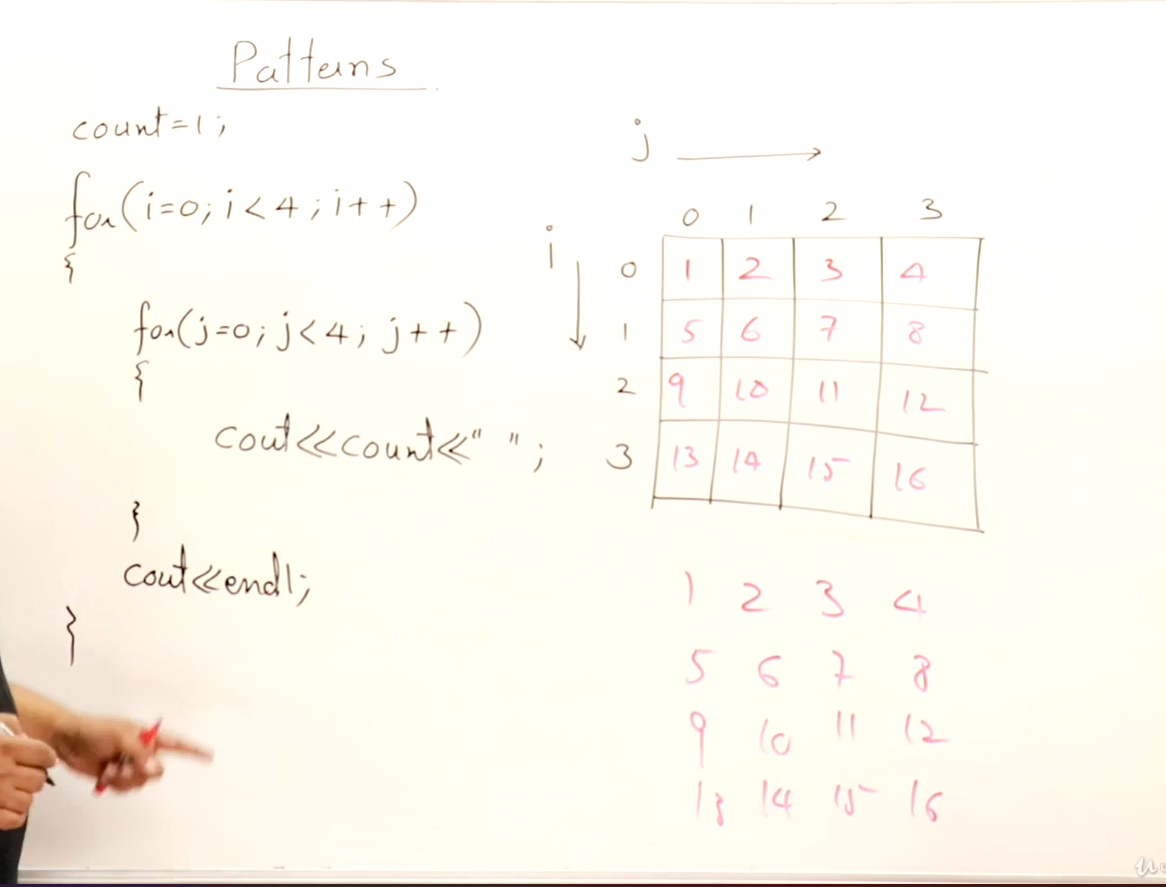 Patterns
count=1;
for(i=0; i<4; i++)
{
for(j=0; j<4; j++)
{
cout<<count<<" ";
}
cout<<endl;
}
j
0 1 2 3
i
0 1 2 3 4
1 5 6 7 8
2 9 10 11 12
3 13 14 15 16
1 2 3 4
5 6 7 8
9 10 11 12
13 14 15 16